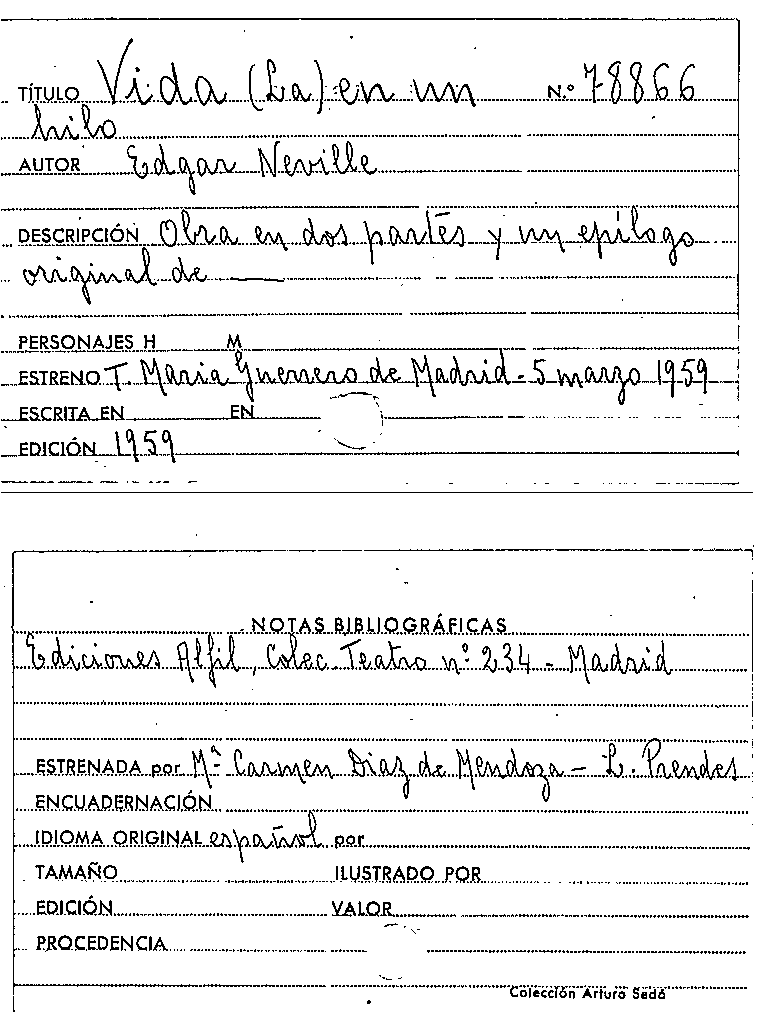 TÍTULO Vida (La) en un N.º 78866
hilo
AUTOR Edgar Neville
DESCRIPCIÓN Obra en dos partes y un epílogo
original de ——
PERSONAJES H M
ESTRENO T. Maria Guerrero de Madrid - 5 marzo 1959
ESCRITA EN EN
EDICIÓN 1959
NOTAS BIBLIOGRÁFICAS
Ediciones Alfil, Colec. Teatro nº 234 - Madrid
ESTRENADA por Mª Carmen Diaz de Mendoza - L. Prendes
ENCUADERNACIÓN
IDIOMA ORIGINAL español por
TAMAÑO ILUSTRADO POR
EDICIÓN VALOR
PROCEDENCIA
Colección Arturo Sedó